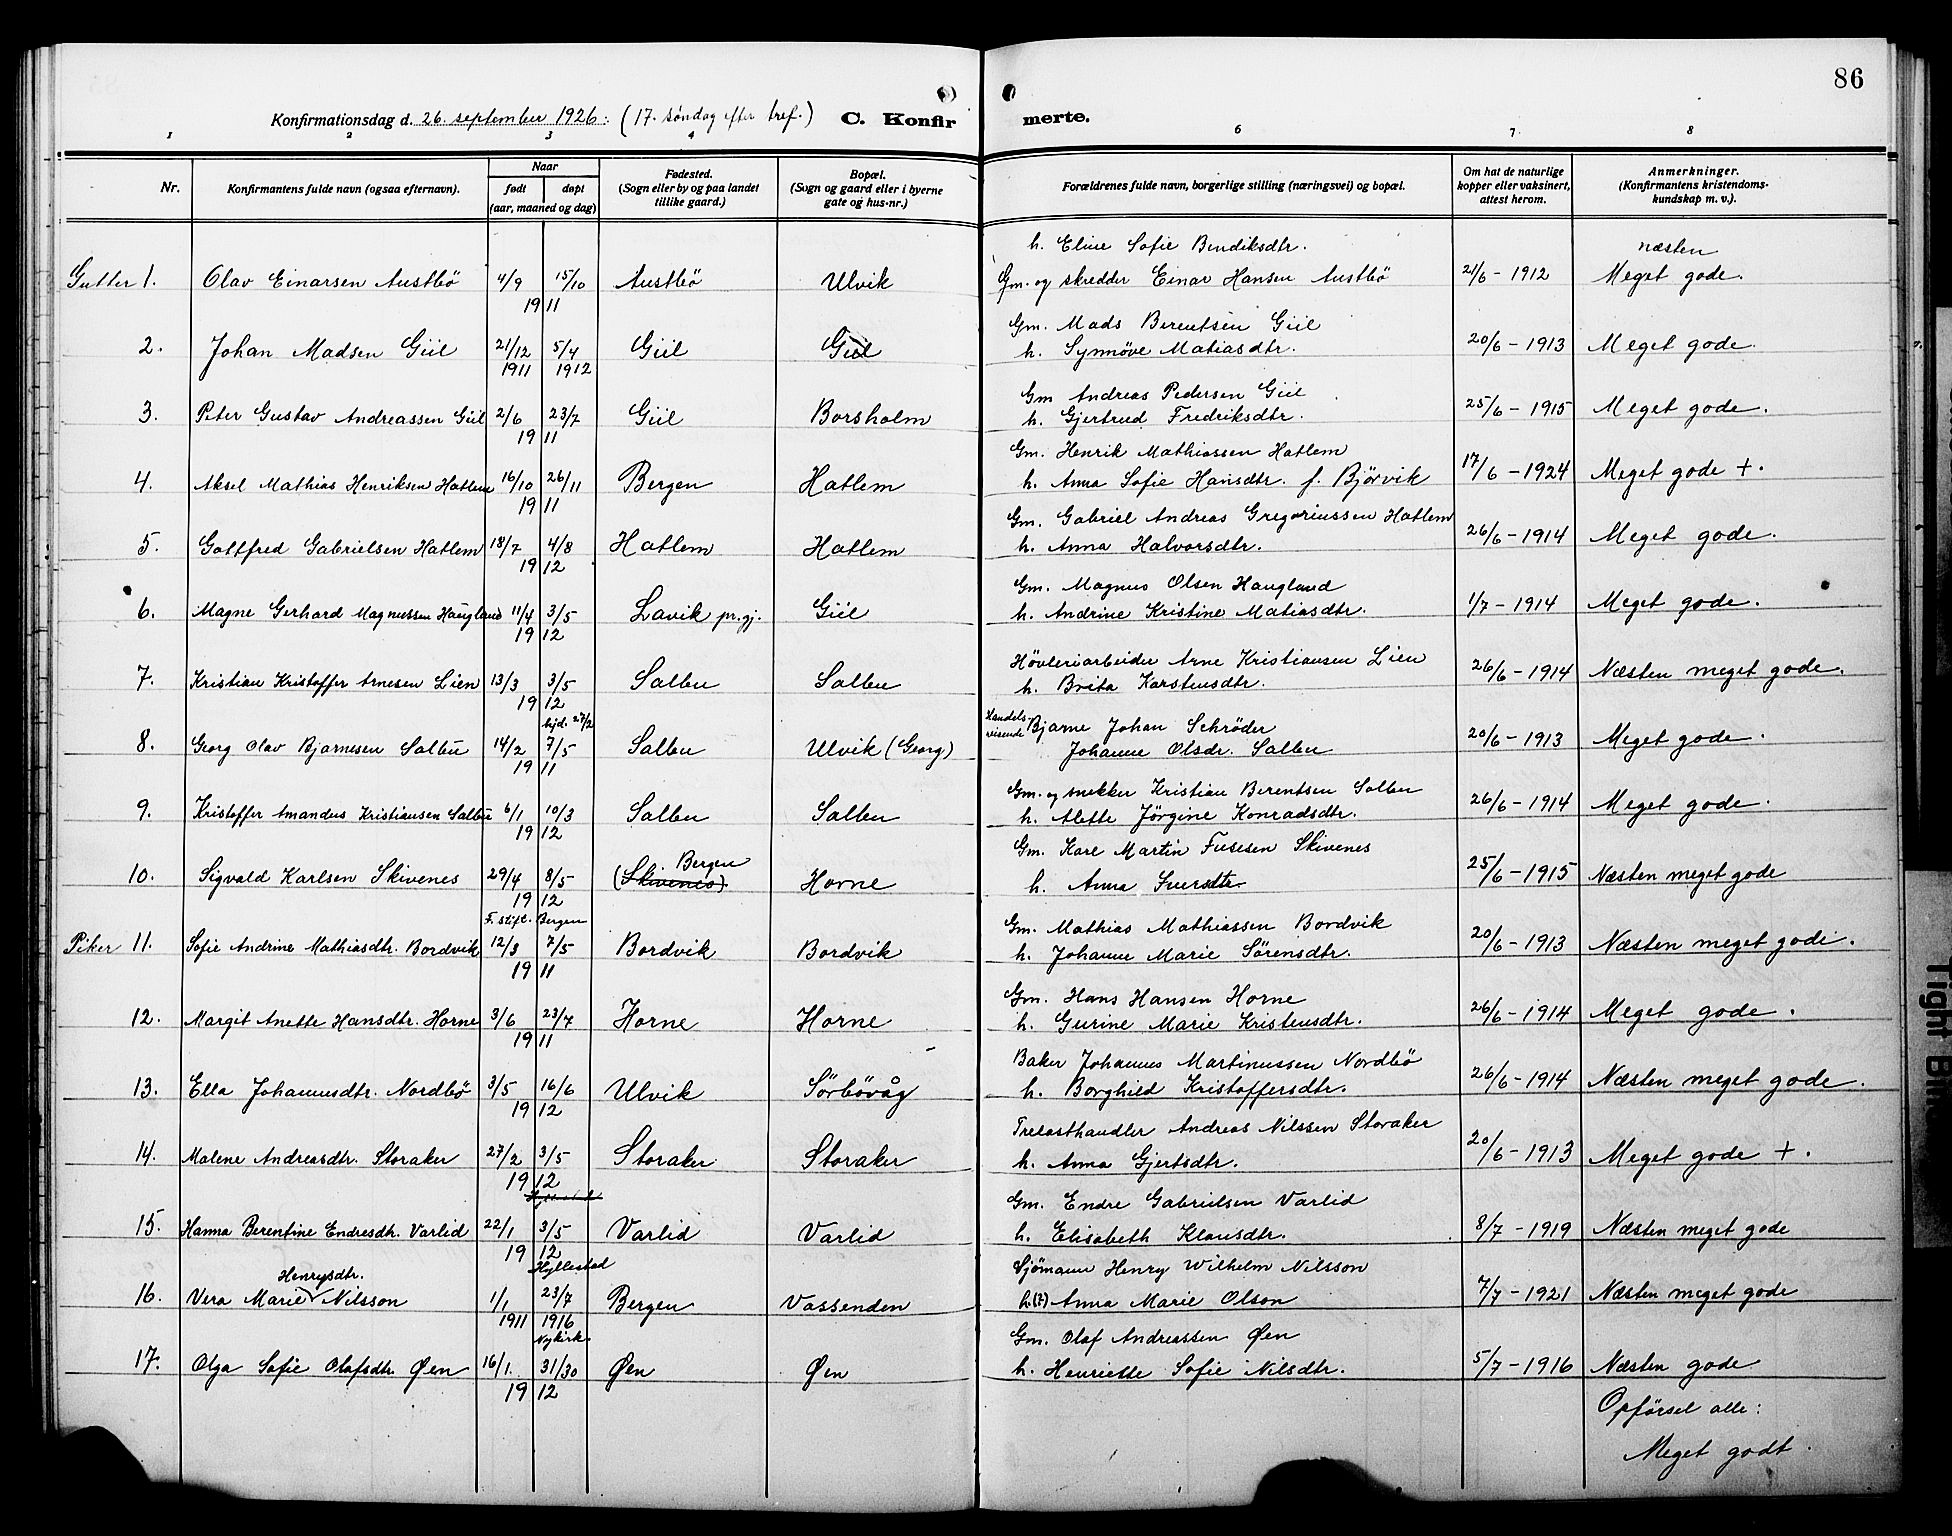 86
Konfirmationsdag d. 26. september 1926: (17. søndag efter tref.) C. Konfirmerte.
1 2 3 4 6 7 8
Nr. Konfirmantens fulde navn (ogsaa efternavn). Naar født døpt (aar, maaned og dag) Fødested. (Sogn eller by og paa landet tillike gaard.) Bopæl. (Sogn og gaard eller i byerne gate og hus-nr.) Forældrenes fulde navn, borgerlige stilling (næringsvei) og bopæl. Om hat de naturlige kopper eller vaksinert, attest herom. Anmerkninger. (Konfirmantens kristendomskundskap m. v.).
h. Eline Sofie Bendiksdtr. næsten
Gutter 1. Olav Einarsen Austbö 4/9 15/10 Austbö Ulvik Gm. og skredder Einar Hansen Austbö 21/6 - 1912 Meget gode.
19 11
Gm. Mads Berentsen Giil
2. Johan Madsen Giil 21/12 5/4 Giil Giil h. Synnöve Matiasdtr. 20/6 - 1913 Meget gode.
1911 1912
Gm Andreas Pedersen Giil
3. Peter Gustav Andreassen Giil 2/6 23/7 Giil Borsholm h. Gjertrud Fredriksdtr. 25/6 - 1915 Meget gode.
19 11
Gm. Henrik Mathiassen Hatlem
4. Aksel Mathias Henriksen Hatlem 16/10 26/11 Bergen Hatlem h. Anna Sofie Hansdtr. f. Björvik 17/6 - 1924 Meget gode +.
19 11
Gm. Gabriel Andreas Gregoriussen Hatlem
5. Gottfred Gabrielsen Hatlem 18/7 4/8 Hatlem Hatlem h. Anna Halvorsdtr. 26/6 - 1914 Meget gode.
19 12
Gm. Magnus Olsen Haugland
6. Magne Gerhard Magnussen Haugland 11/4 3/5 Lavik pr.gj. Giil h. Andrine Kristine Matiasdtr. 1/7 - 1914 Meget gode.
19 12
Hövleriarbeider Arne Kristiansen Lien
7. Kristian Kristoffer Arnesen Lien 13/3 3/5 Salbu Salbu h. Brita Karstensdtr. 26/6 - 1914 Næsten meget gode.
19 12
hjd. 27/2 Handelsreisende Bjarne Johan Schrøder
8. Georg Olav Bjarnesen Salbu 14/2 7/5 Salbu Ulvik (Georg) Johanne Olsdr. Salbu 20/6 - 1913 Meget gode.
19 11
Gm. og snekker Kristian Berentsen Salbu
9. Kristoffer Amandus Kristiansen Salbu 6/1 10/3 Salbu Salbu h. Alette Jörgine Konradsdtr. 26/6 - 1914 Meget gode.
19 12
Bergen Gm. Karl Martin Fusesen Skivenes
10. Sigvald Karlsen Skivenes 29/4 8/5 (Skivenes). Horne h. Anna Iversdtr 25/6 - 1915 Næsten meget gode
19 12
F. stift. Bergen Gm. Mathias Mathiassen Bordvik
Piker 11. Sofie Andrine Mathiasdtr. Bordvik 12/3 7/5 Bordvik Bordvik h. Johanne Marie Sörensdtr. 20/6 - 1913 Næsten meget gode.
19 11
Gm. Hans Hansen Horne
12. Margit Anette Hansdtr. Horne 3/6 23/7 Horne Horne h. Gurine Marie Kristensdtr. 26/6 - 1914 Meget gode.
19 11
Baker Johannes Martinussen Nordbö
13. Ella Johannesdtr. Nordbö 3/5 16/6 Ulvik Sörbövåg h. Borghild Kristoffersdtr. 26/6 - 1914 Næsten meget gode.
19 12
Trelasthandler Andreas Nilssen Storaker
14. Malene Andreasdtr. Storaker 27/2 3/5 Storaker Storaker h. Anna Gjertsdtr. 20/6 - 1913 Meget gode +.
19 12
Gm. Endre Gabrielsen Varlid
15. Hanna Berentine Endresdtr. Varlid 22/1 3/5 Varlid Varlid h. Elisabeth Klausdtr. 8/7 - 1919 Næsten meget gode
19 12
Henrysdtr. Hyllestad Sjömann Henry Wilhelm Nilsson
16. Vera Marie Nilsson 1/1 23/7 Bergen Vassenden h.(?) Anna Marie Olson 7/7 - 1921 Næsten meget gode
1911 1916
Nykirk. Gm. Olaf Andreassen Øen
17. Olga Sofie Olafsdtr. Øen 16/1. 31/30 Øen Øen h. Henriette Sofie Nilsdtr. 5/7 - 1916 Næsten gode
19 12
Opförsel alle:
Meget godt.